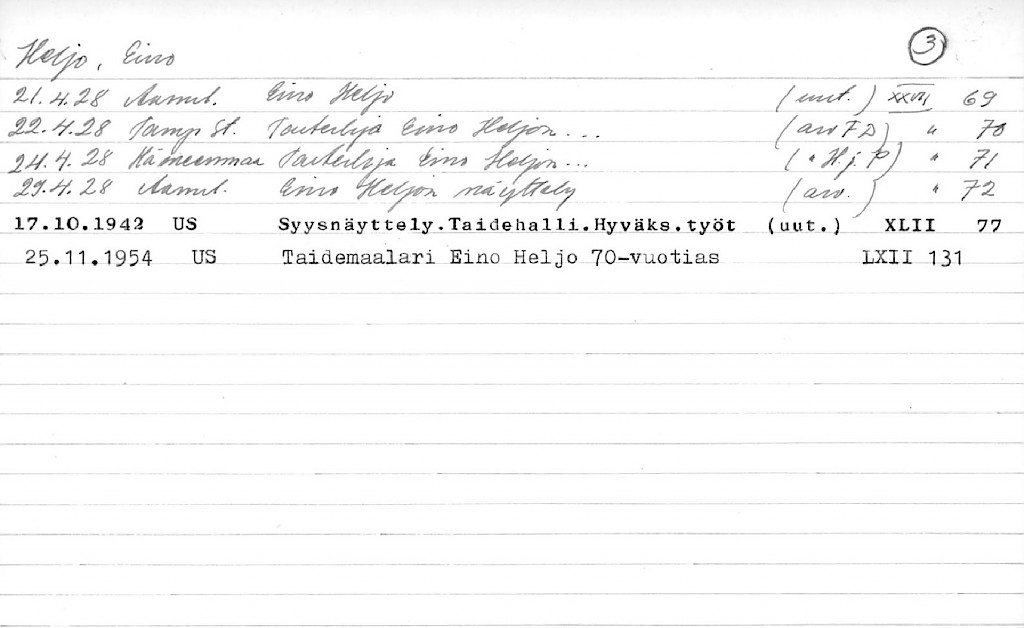 Heljo, Eino 3
21.4.28 Aamul. Eino Heljo (uut.) XXVII 69
22.4.28 Tamp St. Taiteilija Eino Heljon... (arv F D) " 70
24.4.28 Hämeenmaa Taiteilija Eino Heljon... (" H.j. P) " 71
29.4.28 Aamul. Eino Heljon näyttely (arv.) " 72
17.10.1942 US Syysnäyttely.Taidehalli.Hyväks.työt (uut.) XLII 77
25.11.1954 US Taidemaalari Eino Heljo 70-vuotias LXII 131